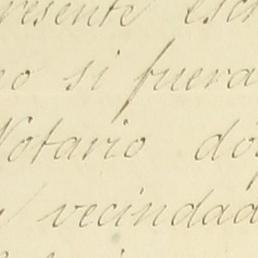 resente esc
o si fuera
Notario do
vecindad